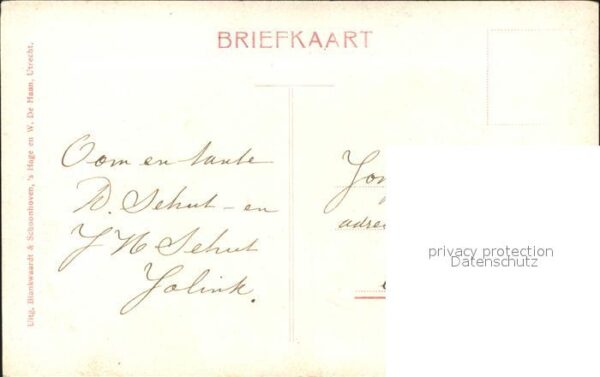 BRIEFKAART
Uitg. Blankwaardt & Schoonhoven, 's Hage en W. De Haan, Utrecht.
Oom en tante
D. Schut - en
J H Schut
Jolink.
adre
privacy protection
Datenschutz